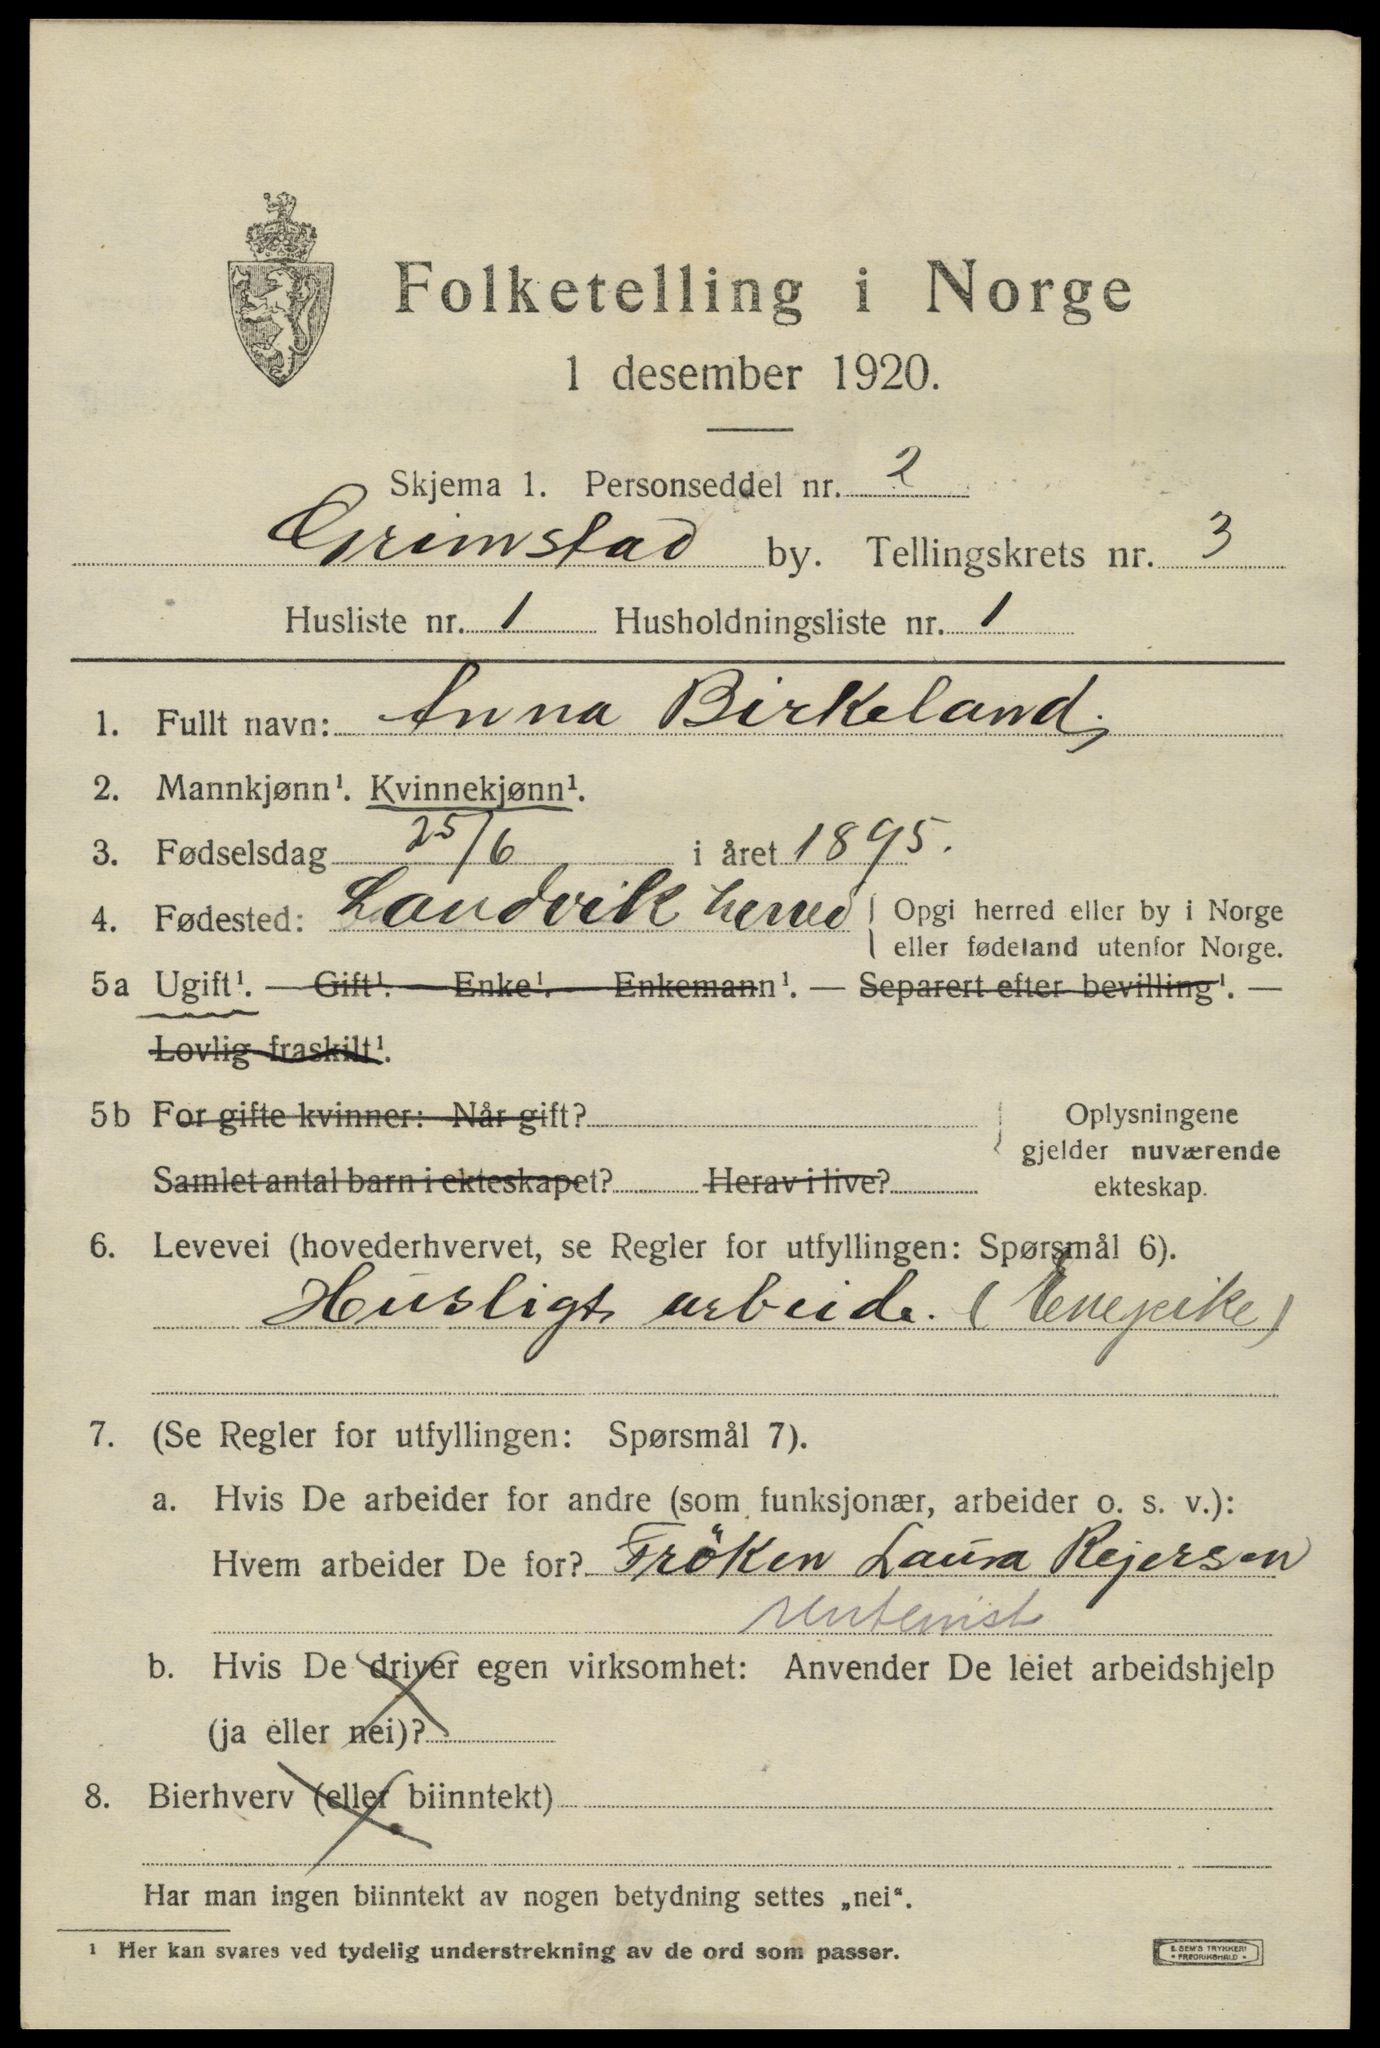 Folketelling i Norge
1 desember 1920.
Skjema 1. Personseddel nr. 2
Grimstad by. Tellingskrets nr. 3
Husliste nr. 1 Husholdningsliste nr. 1
1. Fullt navn: Anna Birkeland,
2. Mannkjønn¹. Kvinnekjønn¹.
3. Fødselsdag 25/6 i året 1895.
4. Fødested: Landvik herred { Opgi herred eller by i Norge
eller fødeland utenfor Norge.
5a Ugift¹. — Gift¹. — Enke¹. — Enkemann¹. — Separert efter bevilling¹. —
Lovlig fraskilt¹.
5b For gifte kvinner: Når gift? { Oplysningene
gjelder nuværende
Samlet antal barn i ekteskapet? Herav i live? ekteskap.
6. Levevei (hovederhvervet, se Regler for utfyllingen: Spørsmål 6).
Husligt arbeide. (Enepike)
7. (Se Regler for utfyllingen: Spørsmål 7).
a. Hvis De arbeider for andre (som funksjonær, arbeider o. s. v.):
Hvem arbeider De for? Fröken Laura Rejersen
rentenist
b. Hvis De driver egen virksomhet: Anvender De leiet arbeidshjelp
(ja eller nei)?
8. Bierhverv (eller biinntekt)
Har man ingen biinntekt av nogen betydning settes „nei“.
¹ Her kan svares ved tydelig understrekning av de ord som passer.
E. SEM'S TRYKKERI
• FREDRIKSHALD •